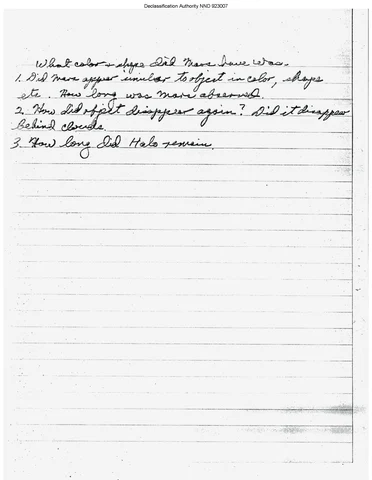 Declassification Authority NND 923007
What color & shape did Mars have was.
1. Did Mars appear similar to object in color, shape
etc. How long was Mars observed.
2. How did object disappear again? Did it disappear
behind clouds.
3. How long did Halo remain.